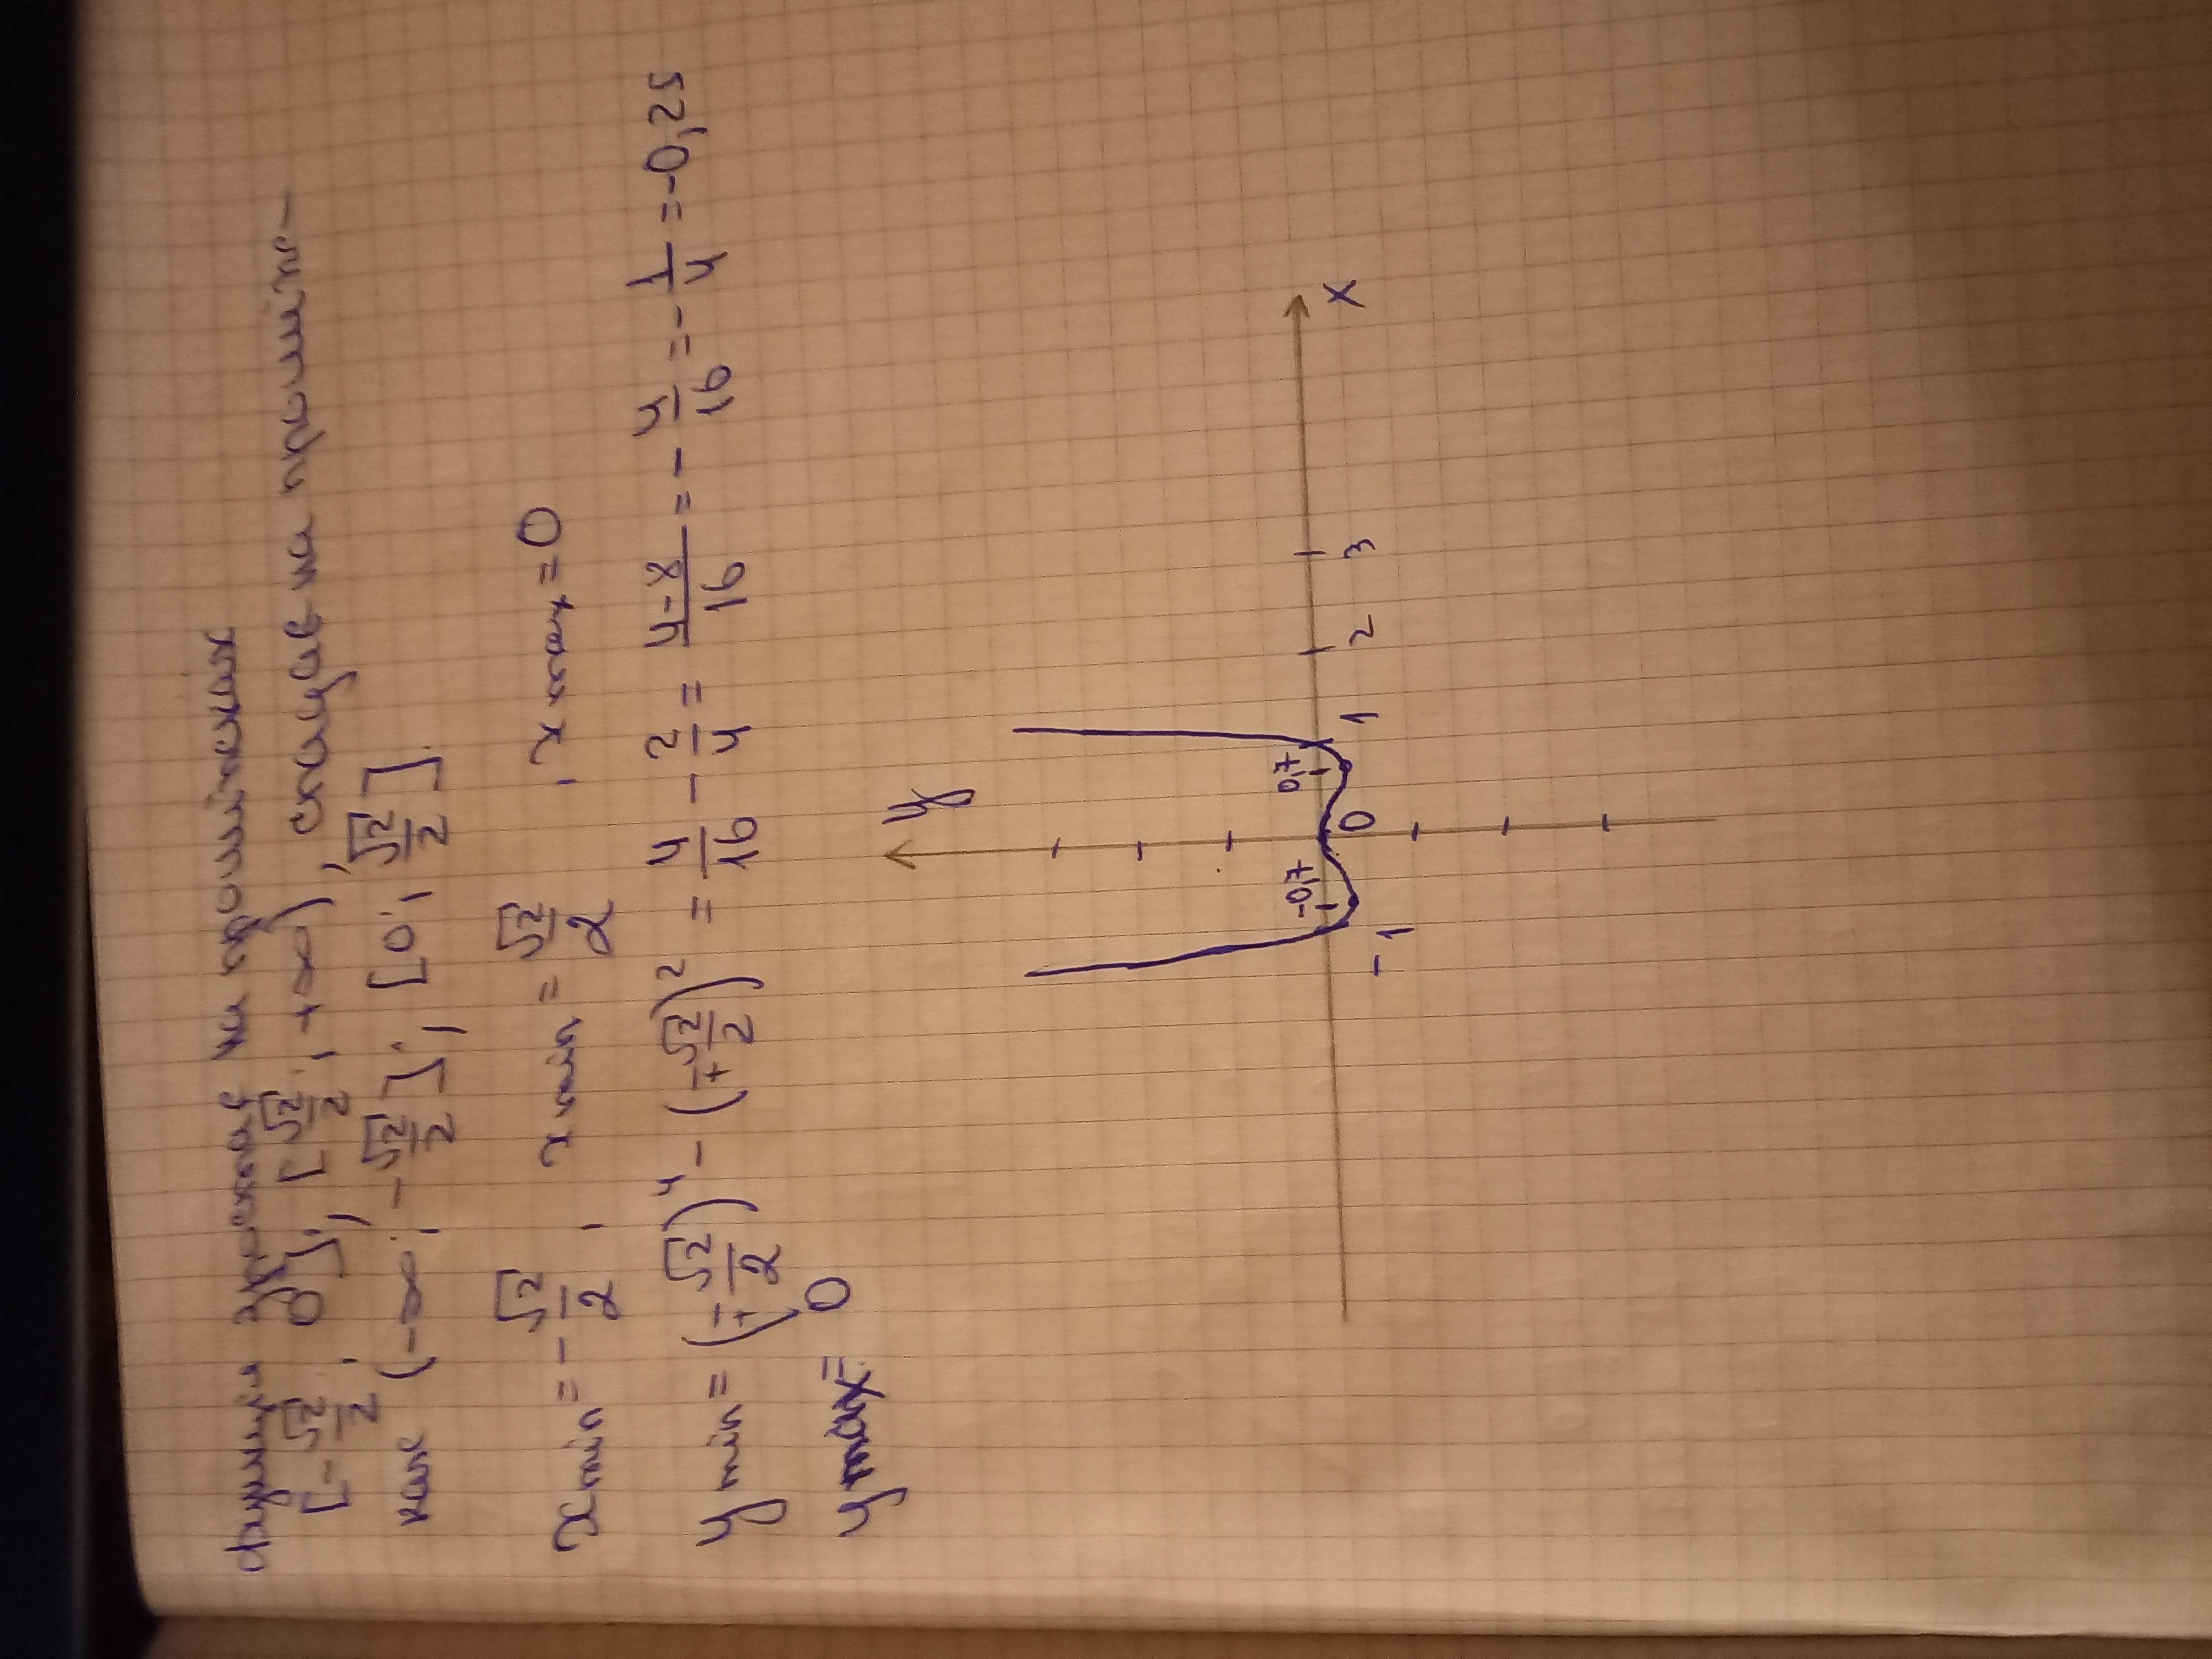 функція зростає на проміжках
[-√2/2; 0], [√2/2; +∞), спадає на проміж-
ках (-∞; -√2/2], [0; √2/2].
x min = -√2/2, x min = √2/2, x max = 0
y min = (∓√2/2)^4 - (∓√2/2)^2 = 4/16 - 2/4 = 4-8/16 = -4/16 = -1/4 = -0,25
y max = 0
y
-1 -0,7 0 0,7 1 2 3 x